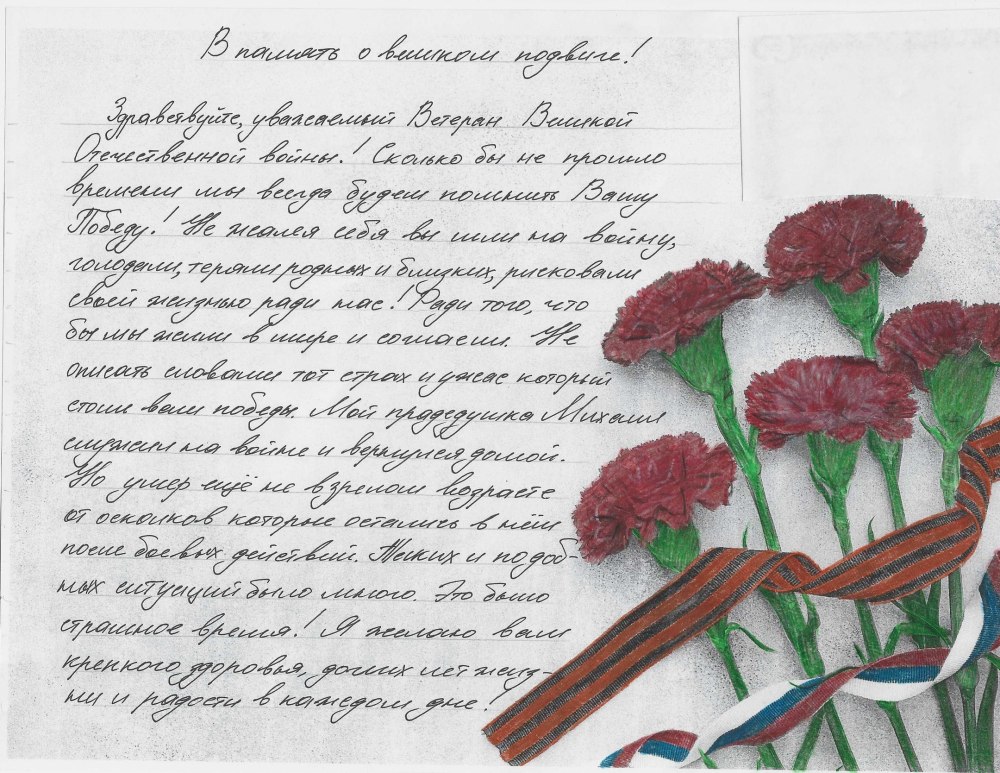 В память о великом подвиге!
Здравствуйте, уважаемый Ветеран Великой
Отечественной войны! Сколько бы не прошло
времени мы всегда будем помнить Вашу
Победу! Не жалея себя вы шли на войну,
голодали, теряли родных и близких, рисковали
своей жизнью ради нас! Ради того, что
бы мы жили в мире и согласии. Не
описать словами тот страх и ужас который
стоил вам победы. Мой прадедушка Михаил
служил на войне и вернулся домой.
Но умер ещё не взрелом возрасте
от осколков которые остались в нём
после боевых действий. Таких и подоб-
ных ситуаций было много. Это было
страшное время! Я желаю вам
крепкого здоровья, долгих лет жиз-
ни и радости в каждом дне!